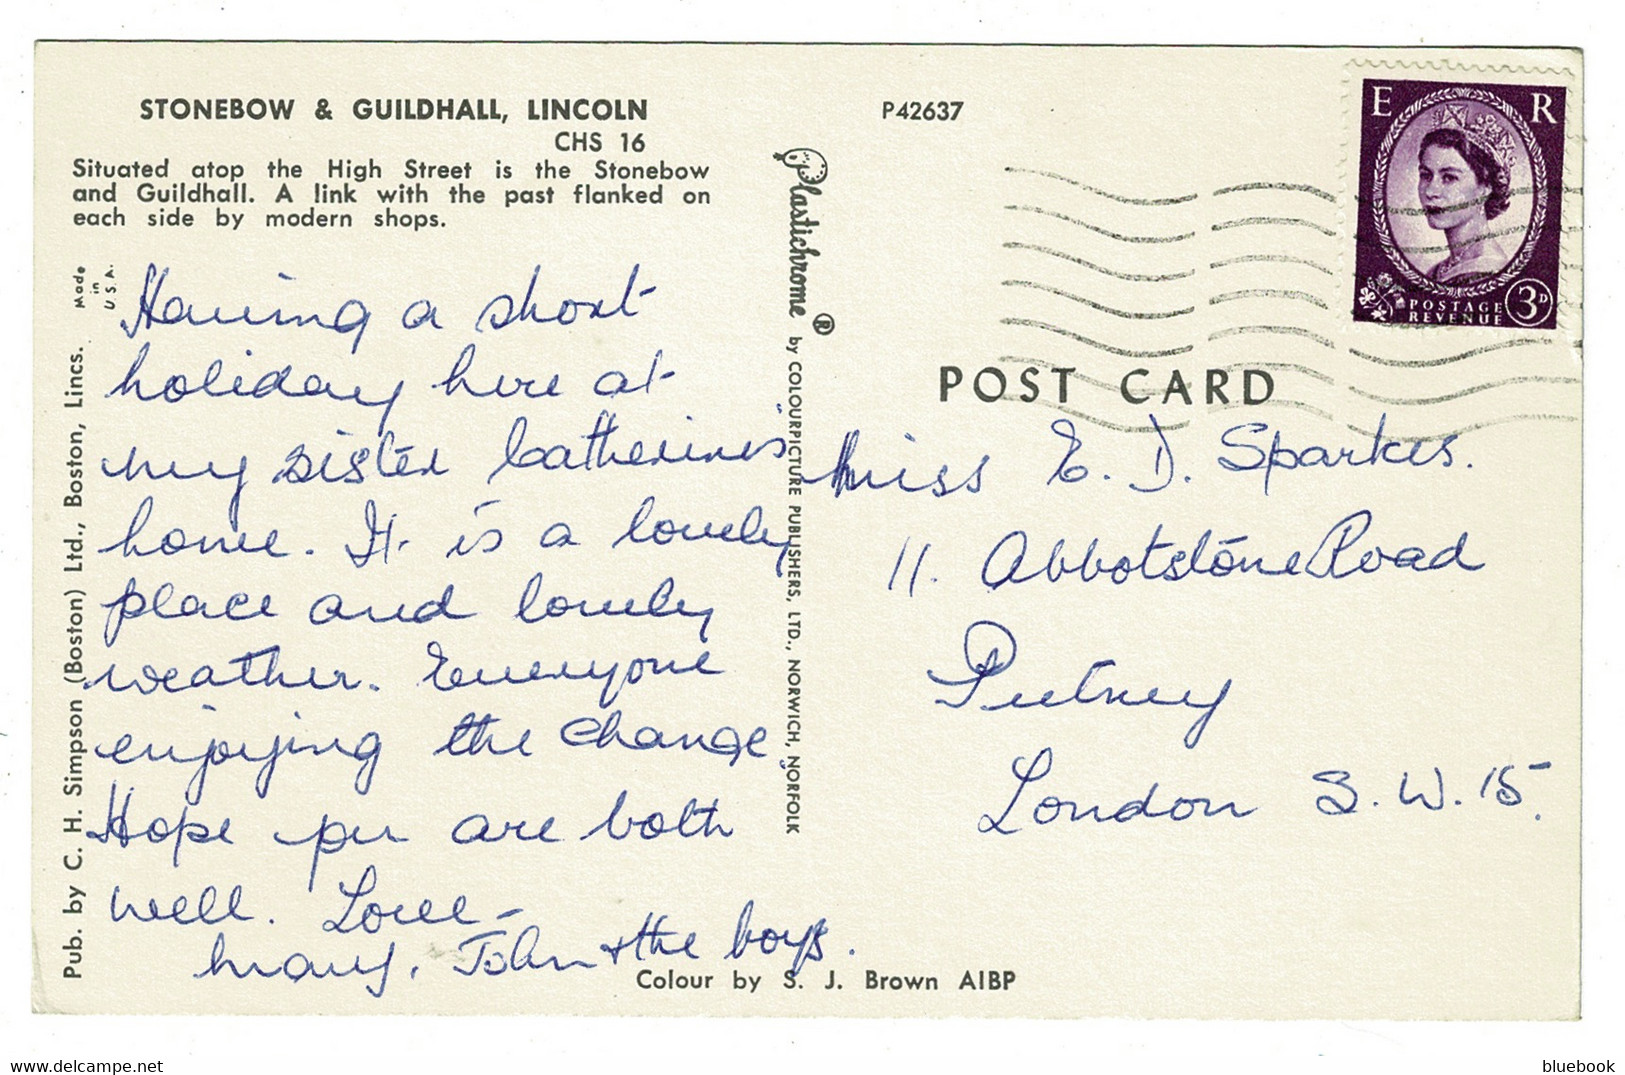 STONEBOW & GUILDHALL, LINCOLN
CHS 16
Situated atop the High Street is the Stonebow
and Guildhall. A link with the past flanked on
each side by modern shops.
P42637
Made
in
U.S.A.
Pub. by C. H. Simpson (Boston) Ltd., Boston, Lincs.
Having a short
holiday here at
my sister Catherines"
home. It is a lovely
place and lovely
weather. Everyone
enjoying the change
Hope you are both
well. Love -
Mary, John & the boys.
Plastichrome ® by COLOURPICTURE PUBLISHERS, LTD., NORWICH, NORFOLK
Colour by S. J. Brown AIBP
E R
POSTAGE
REVENUE
3D
POST CARD
Miss E. D. Sparkes.
11. Abbotstone Road
Putney
London S.W.15.
bluebook